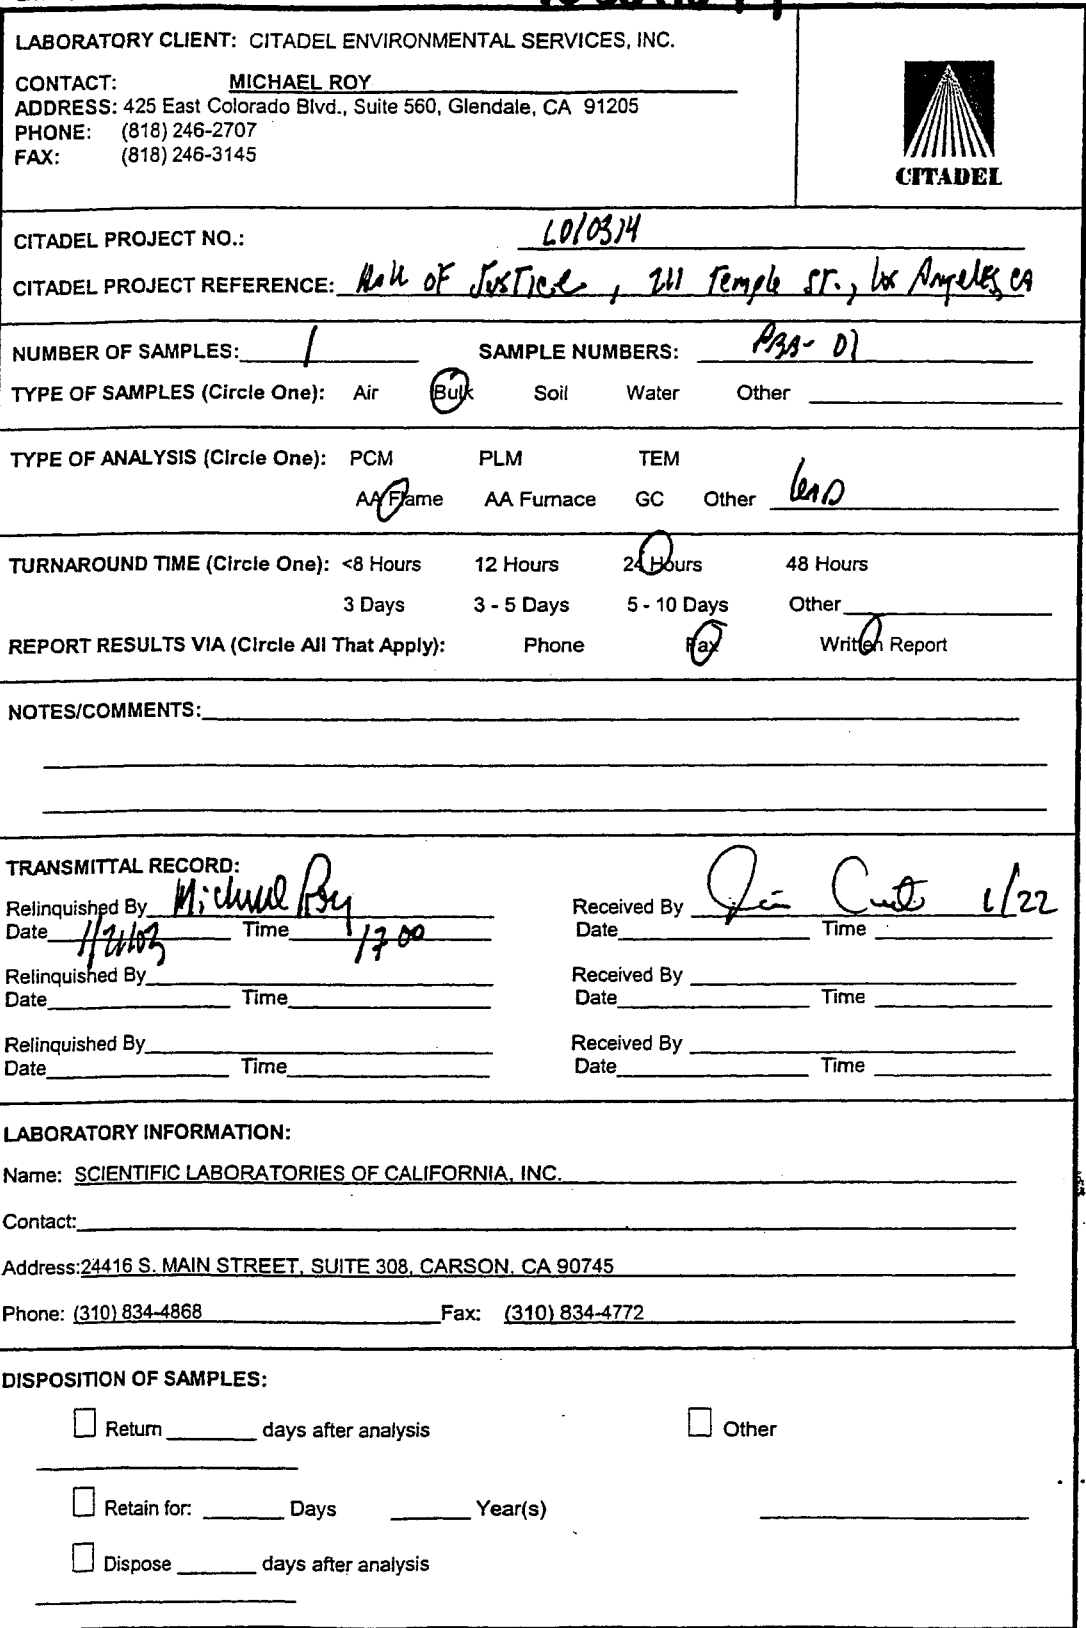 LABORATORY CLIENT: CITADEL ENVIRONMENTAL SERVICES, INC.
CONTACT: MICHAEL ROY
ADDRESS: 425 East Colorado Blvd., Suite 560, Glendale, CA 91205
PHONE: (818) 246-2707
FAX: (818) 246-3145
CITADEL
CITADEL PROJECT NO.:
CITADEL PROJECT REFERENCE: Hall of Justice, 211 Temple St., Los Angeles, CA
NUMBER OF SAMPLES: 1 SAMPLE NUMBERS:
TYPE OF SAMPLES (Circle One): Air Bulk Soil Water Other
TYPE OF ANALYSIS (Circle One): PCM PLM TEM
AA Flame AA Furnace GC Other Lead
TURNAROUND TIME (Circle One): <8 Hours 12 Hours 24 Hours 48 Hours
3 Days 3 - 5 Days 5 - 10 Days Other
REPORT RESULTS VIA (Circle All That Apply): Phone Fax Written Report
NOTES/COMMENTS:
TRANSMITTAL RECORD:
Relinquished By Michael Roy Received By 1/22
Date 1/21/03 Time 1700 Date Time
Relinquished By Received By
Date Time Date Time
Relinquished By Received By
Date Time Date Time
LABORATORY INFORMATION:
Name: SCIENTIFIC LABORATORIES OF CALIFORNIA, INC.
Contact:
Address: 24416 S. MAIN STREET, SUITE 308, CARSON, CA 90745
Phone: (310) 834-4868 Fax: (310) 834-4772
DISPOSITION OF SAMPLES:
Return days after analysis Other
Retain for: Days Year(s)
Dispose days after analysis